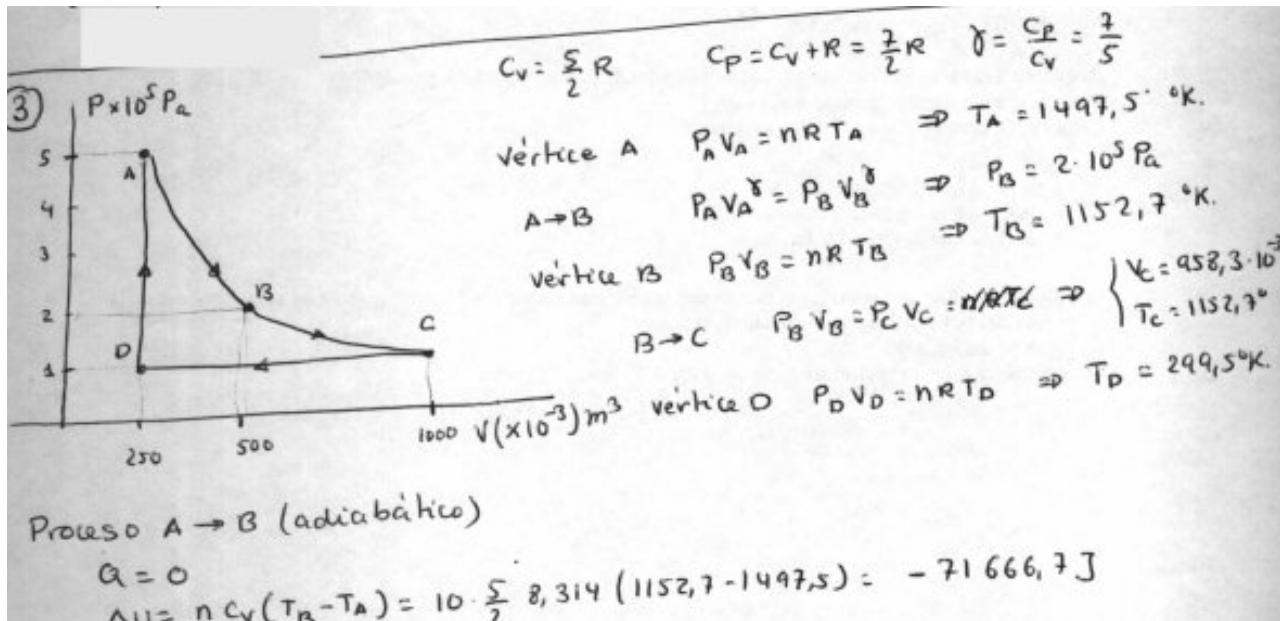 C_v = 5/2 R   C_P = C_v + R = 7/2 R   γ = C_P/C_v = 7/5
3
P×10⁵ Pa
5
4
3
2
1
A
B
C
D
250
500
1000
V(×10⁻³)m³
vértice A   P_A V_A = nRT_A   ⇒ T_A = 1497,5 °K.
A→B   P_A V_A^γ = P_B V_B^γ   ⇒ P_B = 2·10⁵ Pa
vértice B   P_B V_B = nRT_B   ⇒ T_B = 1152,7 °K.
B→C   P_B V_B = P_C V_C   ⇒ { V_C = 958,3·10⁻³
T_C = 1152,7°
vértice D   P_D V_D = nRT_D   ⇒ T_D = 299,5°K.
Proceso A → B (adiabático)
Q = 0
ΔU = n C_v (T_B - T_A) = 10 · 5/2 8,314 (1152,7 - 1497,5) = - 71 666,7 J